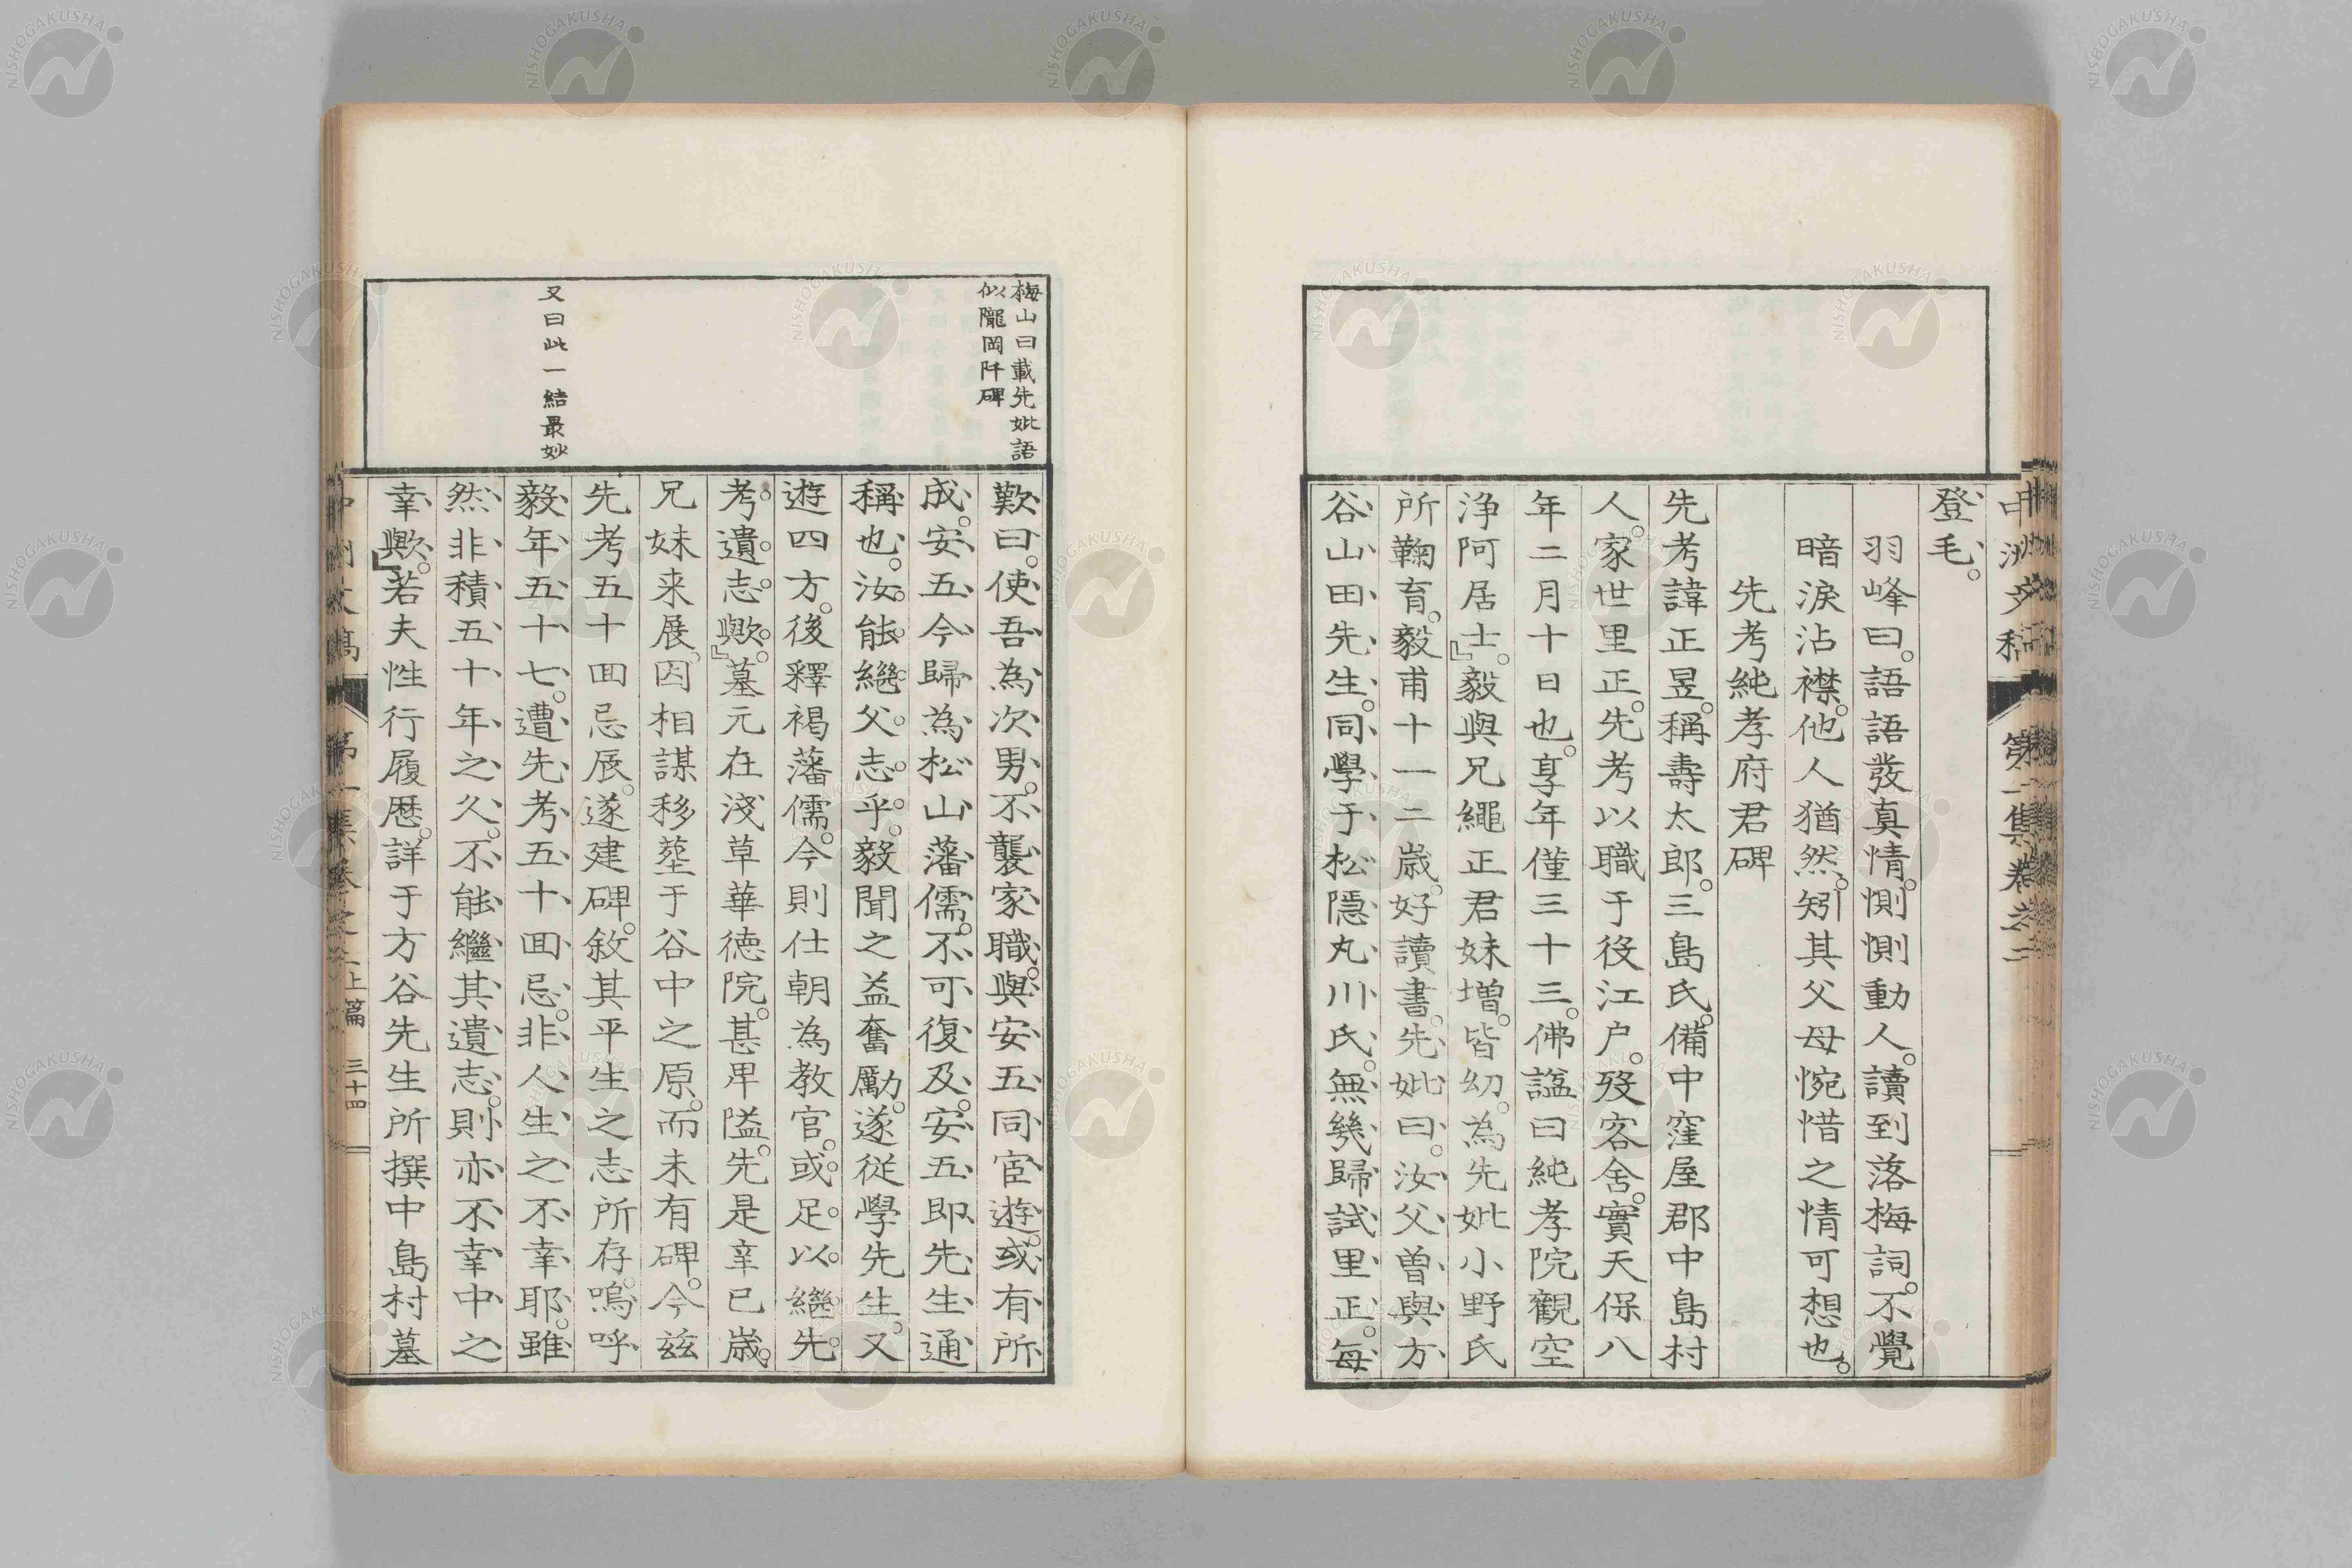 登毛。
羽峰曰。語語發真情。惻惻動人。讀到落梅詞。不覺
暗淚沾襟。他人猶然。矧其父母惋惜之情可想也。
先考純孝府君碑
先考諱正昱。稱壽太郎。三島氏。備中窪屋郡中島村
人。家世里正。先考以職于役江戶。歿客舍。實天保八
年二月十日也。享年僅三十三。佛謚曰純孝院觀空
浄阿居士。』毅與兄繩正君妹増。皆幼。為先妣小野氏
所鞠育。毅甫十一二歳。好讀書。先妣曰。汝父曽與方
谷山田先生。同學于松隱丸川氏。無幾歸試里正。每
梅山曰載先妣語
似隴岡阡碑
又曰此一結最妙
歎曰。使吾為次男。不襲家職。與安五同宦遊。或有所
成。安五今歸為松山藩儒。不可復及。安五即先生通
稱也。汝能繼父志乎。毅聞之益奮勵。遂従學先生。又
遊四方。後釋褐藩儒。今則仕朝為教官。或足以繼先
考遺志歟。』墓元在淺草華徳院。甚卑隘。先是辛巳歳。
兄妹来展。因相謀移塟于谷中之原。而未有碑。今茲
先考五十回忌辰。遂建碑。敘其平生之志所存。嗚呼
毅年五十七。遭先考五十回忌。非人生之不幸耶。雖
然非積五十年之久。不能繼其遺志。則亦不幸中之
幸歟。』若夫性行履歴。詳于方谷先生所撰中島村墓
上篇 三十四